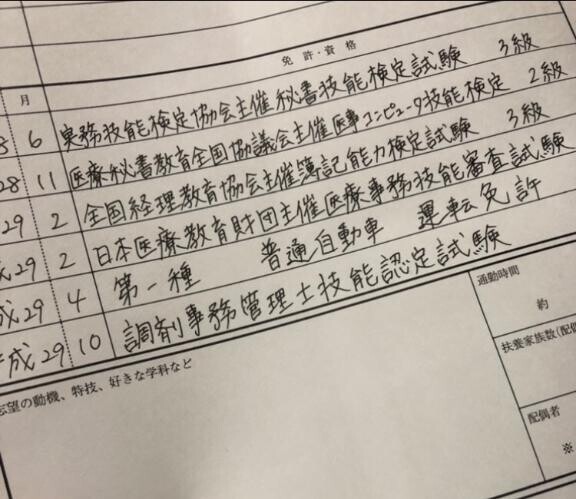 月 免許・資格
8 6 実務技能検定協会主催秘書技能検定試験 3級
28 11 医療秘書教育全国協議会主催医事コンピュータ技能検定 2級
29 2 全国経理教育協会主催簿記能力検定試験 3級
成29 2 日本医療教育財団主催医療事務技能審査試験
成29 4 第一種 普通自動車 運転免許
平成29 10 調剤事務管理士技能認定試験
通勤時間
約
志望の動機、特技、好きな学科など
扶養家族数(配偶
配偶者
※